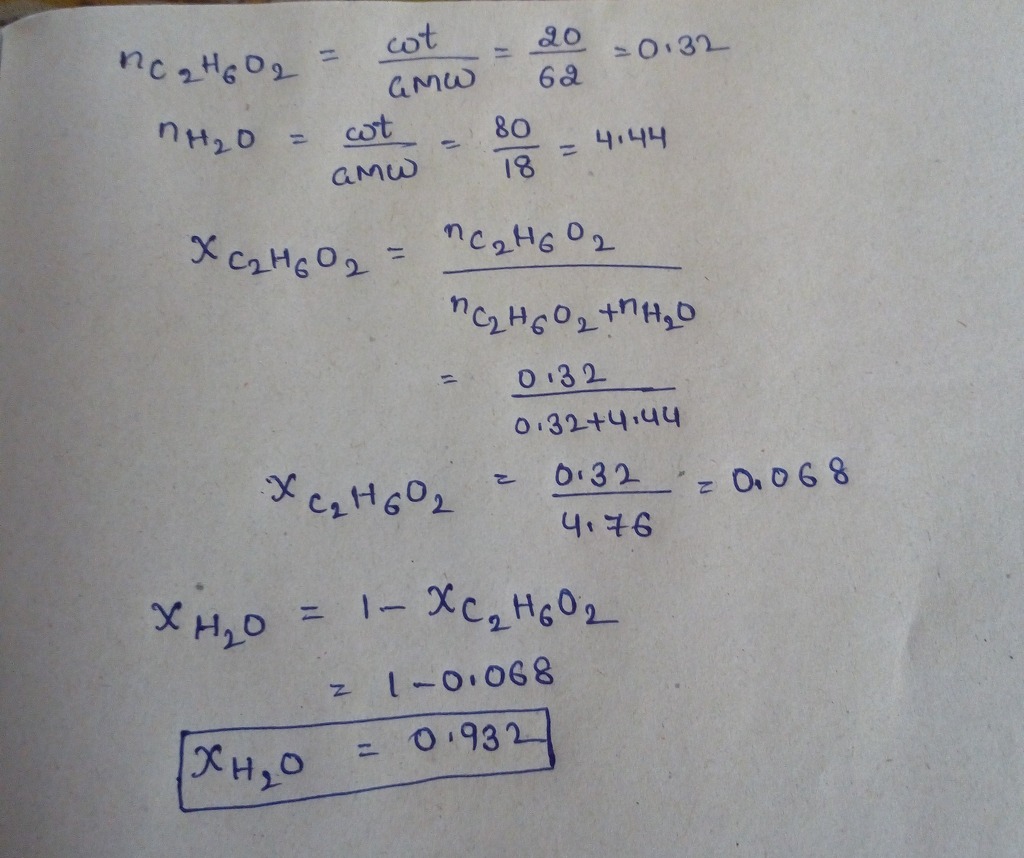 nC₂H₆O₂ = wt/GMW = 20/62 = 0.32
nH₂O = wt/GMW = 80/18 = 4.44
xC₂H₆O₂ = nC₂H₆O₂/nC₂H₆O₂+nH₂O
= 0.32/0.32+4.44
xC₂H₆O₂ = 0.32/4.76 = 0.068
xH₂O = 1 - xC₂H₆O₂
= 1-0.068
xH₂O = 0.932